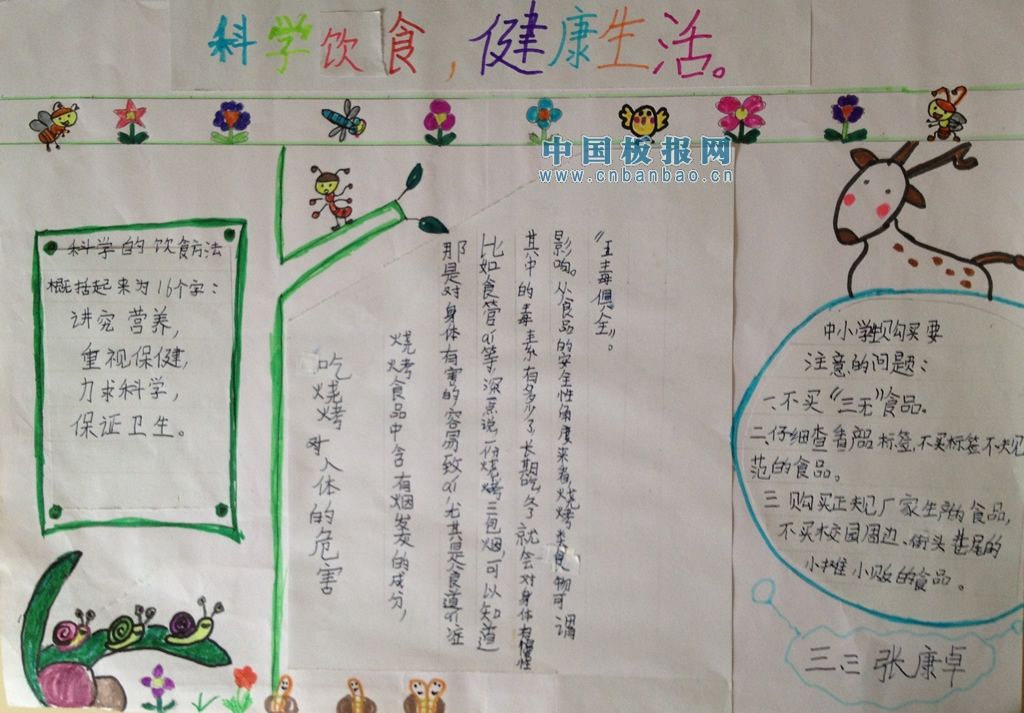 科学饮食，健康生活。
中国板报网
www.cnbanbao.cn
科学的饮食方法
概括起来为16个字：
讲究营养，
重视保健，
力求科学，
保证卫生。
吃烧烤对人体的危害
烧烤食品中含有烟发的成分，
那是对身体有害的容易致ai尤其是食道ai症
比如食管ai等，说一份烧烤三包烟，可以知道
其中的毒素有多少了长期吃多了就会对身体有慢性
影响。从食品的安全性角度来看烧烤类食物可谓
“五毒俱全”。
中小学生购买要
注意的问题：
一、不买“三无”食品。
二、仔细查看商品标签，不买标签不规
范的食品。
三购买正规厂家生产的食品，
不买校园周边、街头巷尾的
小摊小贩的食品。
三.三 张康卓